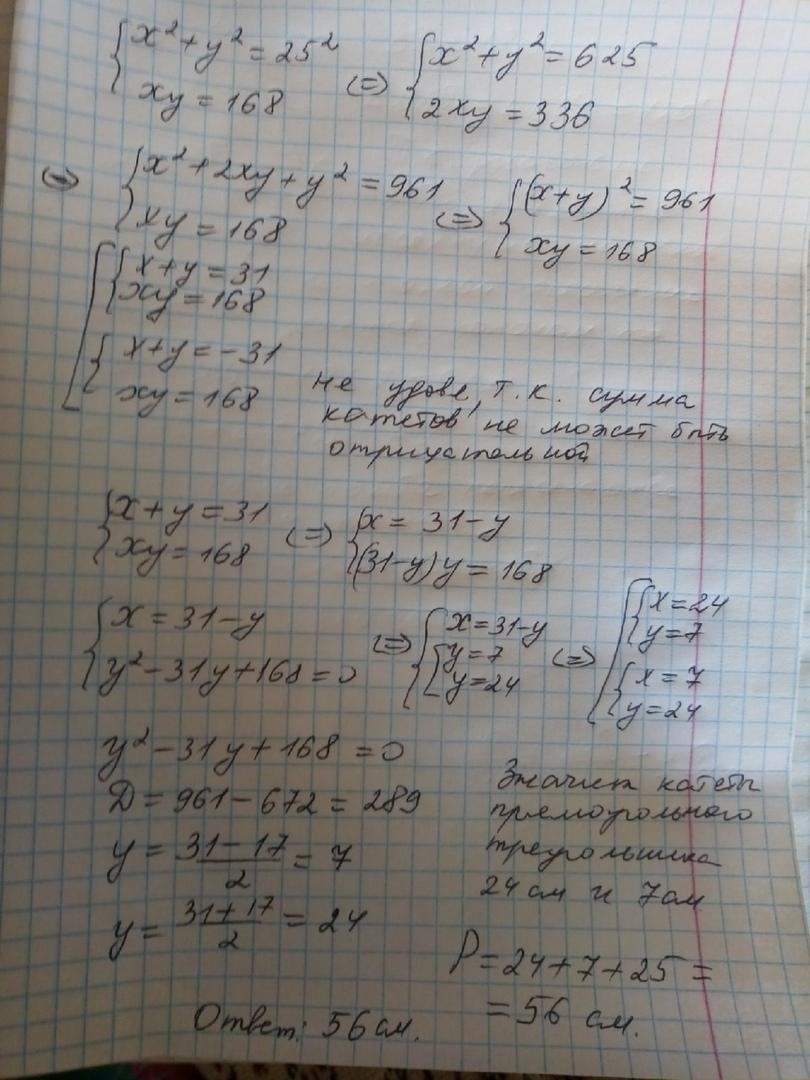 x² + y² = 25²
xy = 168
<=>
x² + y² = 625
2xy = 336
<=>
x² + 2xy + y² = 961
xy = 168
<=>
(x+y)² = 961
xy = 168
x+y = 31
xy = 168
x+y = -31
xy = 168
не удовл, т.к. сумма
катетов не может быть
отрицательной
x + y = 31
xy = 168
<=>
x = 31-y
(31-y)y = 168
x = 31-y
y² - 31y + 168 = 0
<=>
x = 31-y
y = 7
y = 24
<=>
x = 24
y = 7
x = 7
y = 24
y² - 31y + 168 = 0
D = 961 - 672 = 289
y = (31-17)/2 = 7
y = (31+17)/2 = 24
Значит катеты
прямоугольного
треугольника
24 см и 7 см
P = 24 + 7 + 25 =
= 56 см.
Ответ: 56 см.